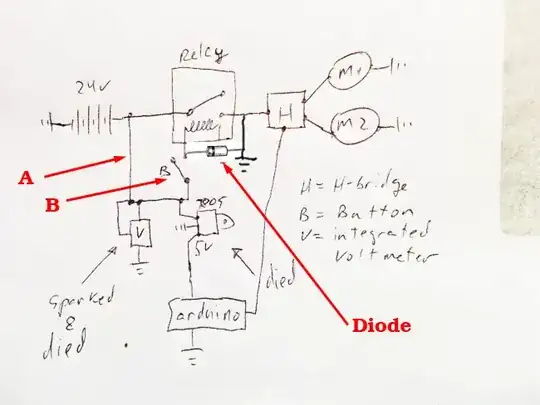 Relay
24V
M1
H
M2
A
B
B
H = H-bridge
7805
B = Button
V
V = integrated
voltmeter
5V
sparked
&
died
died
arduino
Diode